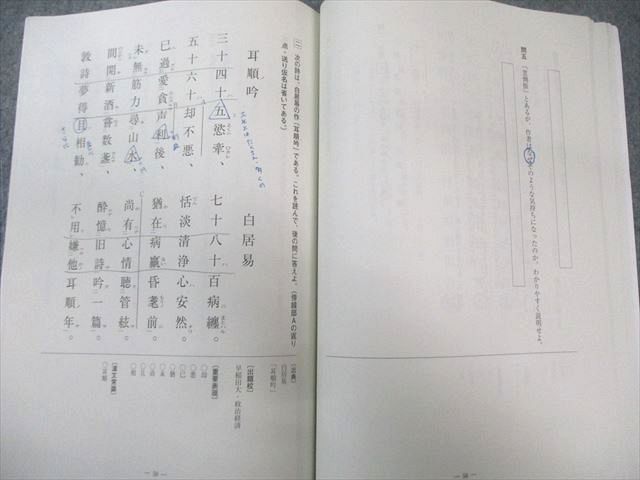 問五 とあるが、作者はなぜそのような気持ちになったのか、わかりやすく説明せよ。
〔二〕 次の詩は、白居易の作「耳順吟」である。これを読んで、後の問に答えよ。(傍線部Aの返り
点・送り仮名は省いてある。)
耳順吟 白居易
三十四十五慾牽、 七十八十百病纏。
五十六十却不悪、 恬淡清浄心安然。
已過愛貪声利後、 猶在病羸昏耄前。
未無筋力尋山水、 尚有心情聴管絃。
閒開新酒嘗数盞、 酔憶旧詩吟一篇。
敦詩夢得且相勧、 不用嫌他耳順年。
〔出典〕
「耳順吟」
〔出題校〕
早稲田大・政治経済
〔重要表現〕
〔漢文常識〕
○耳順